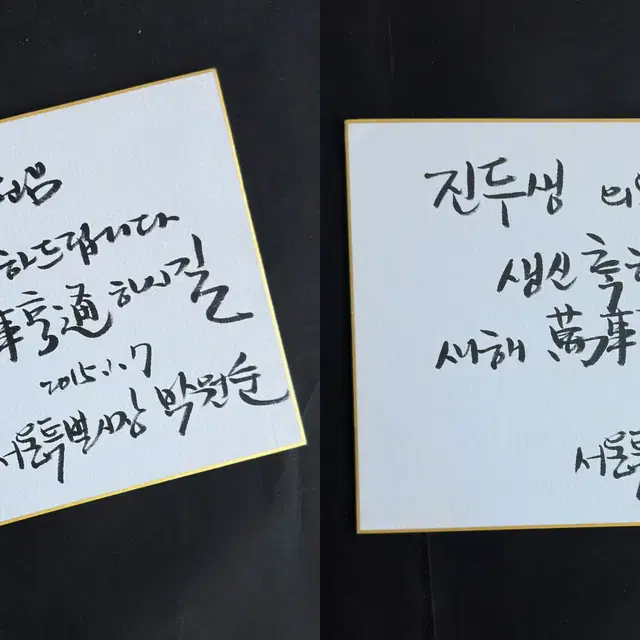 님
하드립니다
事亨通 하시길
2015.1.7
서울특별시장 박원순
진두생 의
생신 축하
새해 萬事
서울특